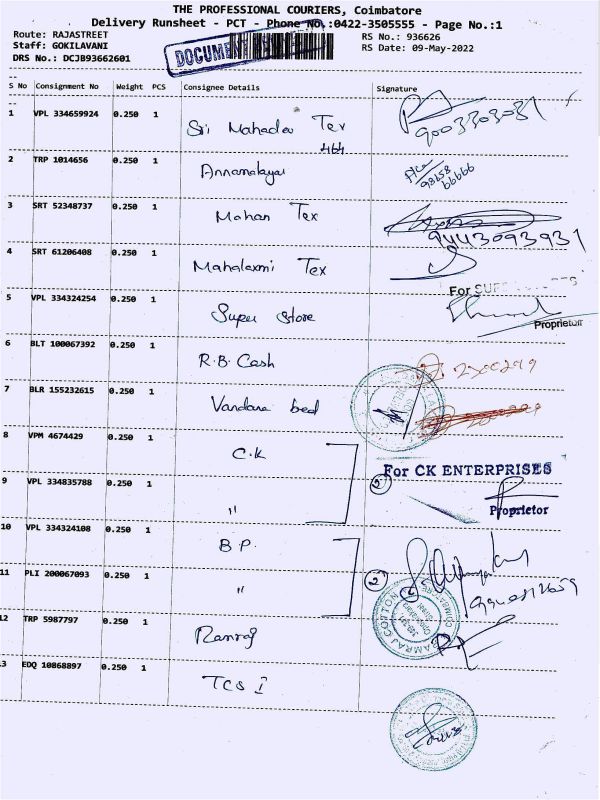 THE PROFESSIONAL COURIERS, Coimbatore
Delivery Runsheet - PCT - Phone No.:0422-3505555 - Page No.:1
Route: RAJASTREET
RS No.: 936626
Staff: GOKILAVANI
RS Date: 09-May-2022
DRS No.: DCJB93662601
DOCUMENT
S No Consignment No Weight PCS Consignee Details Signature
1 VPL 334659924 0.250 1 Sri Mahadev Tex
464
9003303031
2 TRP 1014656 0.250 1 Annamalayar
98658
66666
3 SRT 52348737 0.250 1 Mohan Tex
9443093931
4 SRT 61206408 0.250 1 Mahalaxmi Tex
For
5 VPL 334324254 0.250 1 Super Store
Proprietor
6 BLT 100067392 0.250 1 R.B. Cash
7 BLR 155232615 0.250 1 Vandana bed
8 VPM 4674429 0.250 1 C.K
For CK ENTERPRISES
9 VPL 334835788 0.250 1 "
2
Proprietor
10 VPL 334324108 0.250 1 B.P.
11 PLI 200067093 0.250 1 "
2
12 TRP 5987797 0.250 1 Ramraj
RAMRAJ COTTON
COIMBATORE
13 EDQ 10868897 0.250 1 TCS I